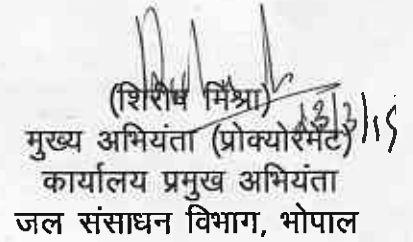 (शिरीष मिश्रा)
मुख्य अभियंता (प्रोक्योरमेंट)
कार्यालय प्रमुख अभियंता
जल संसाधन विभाग, भोपाल